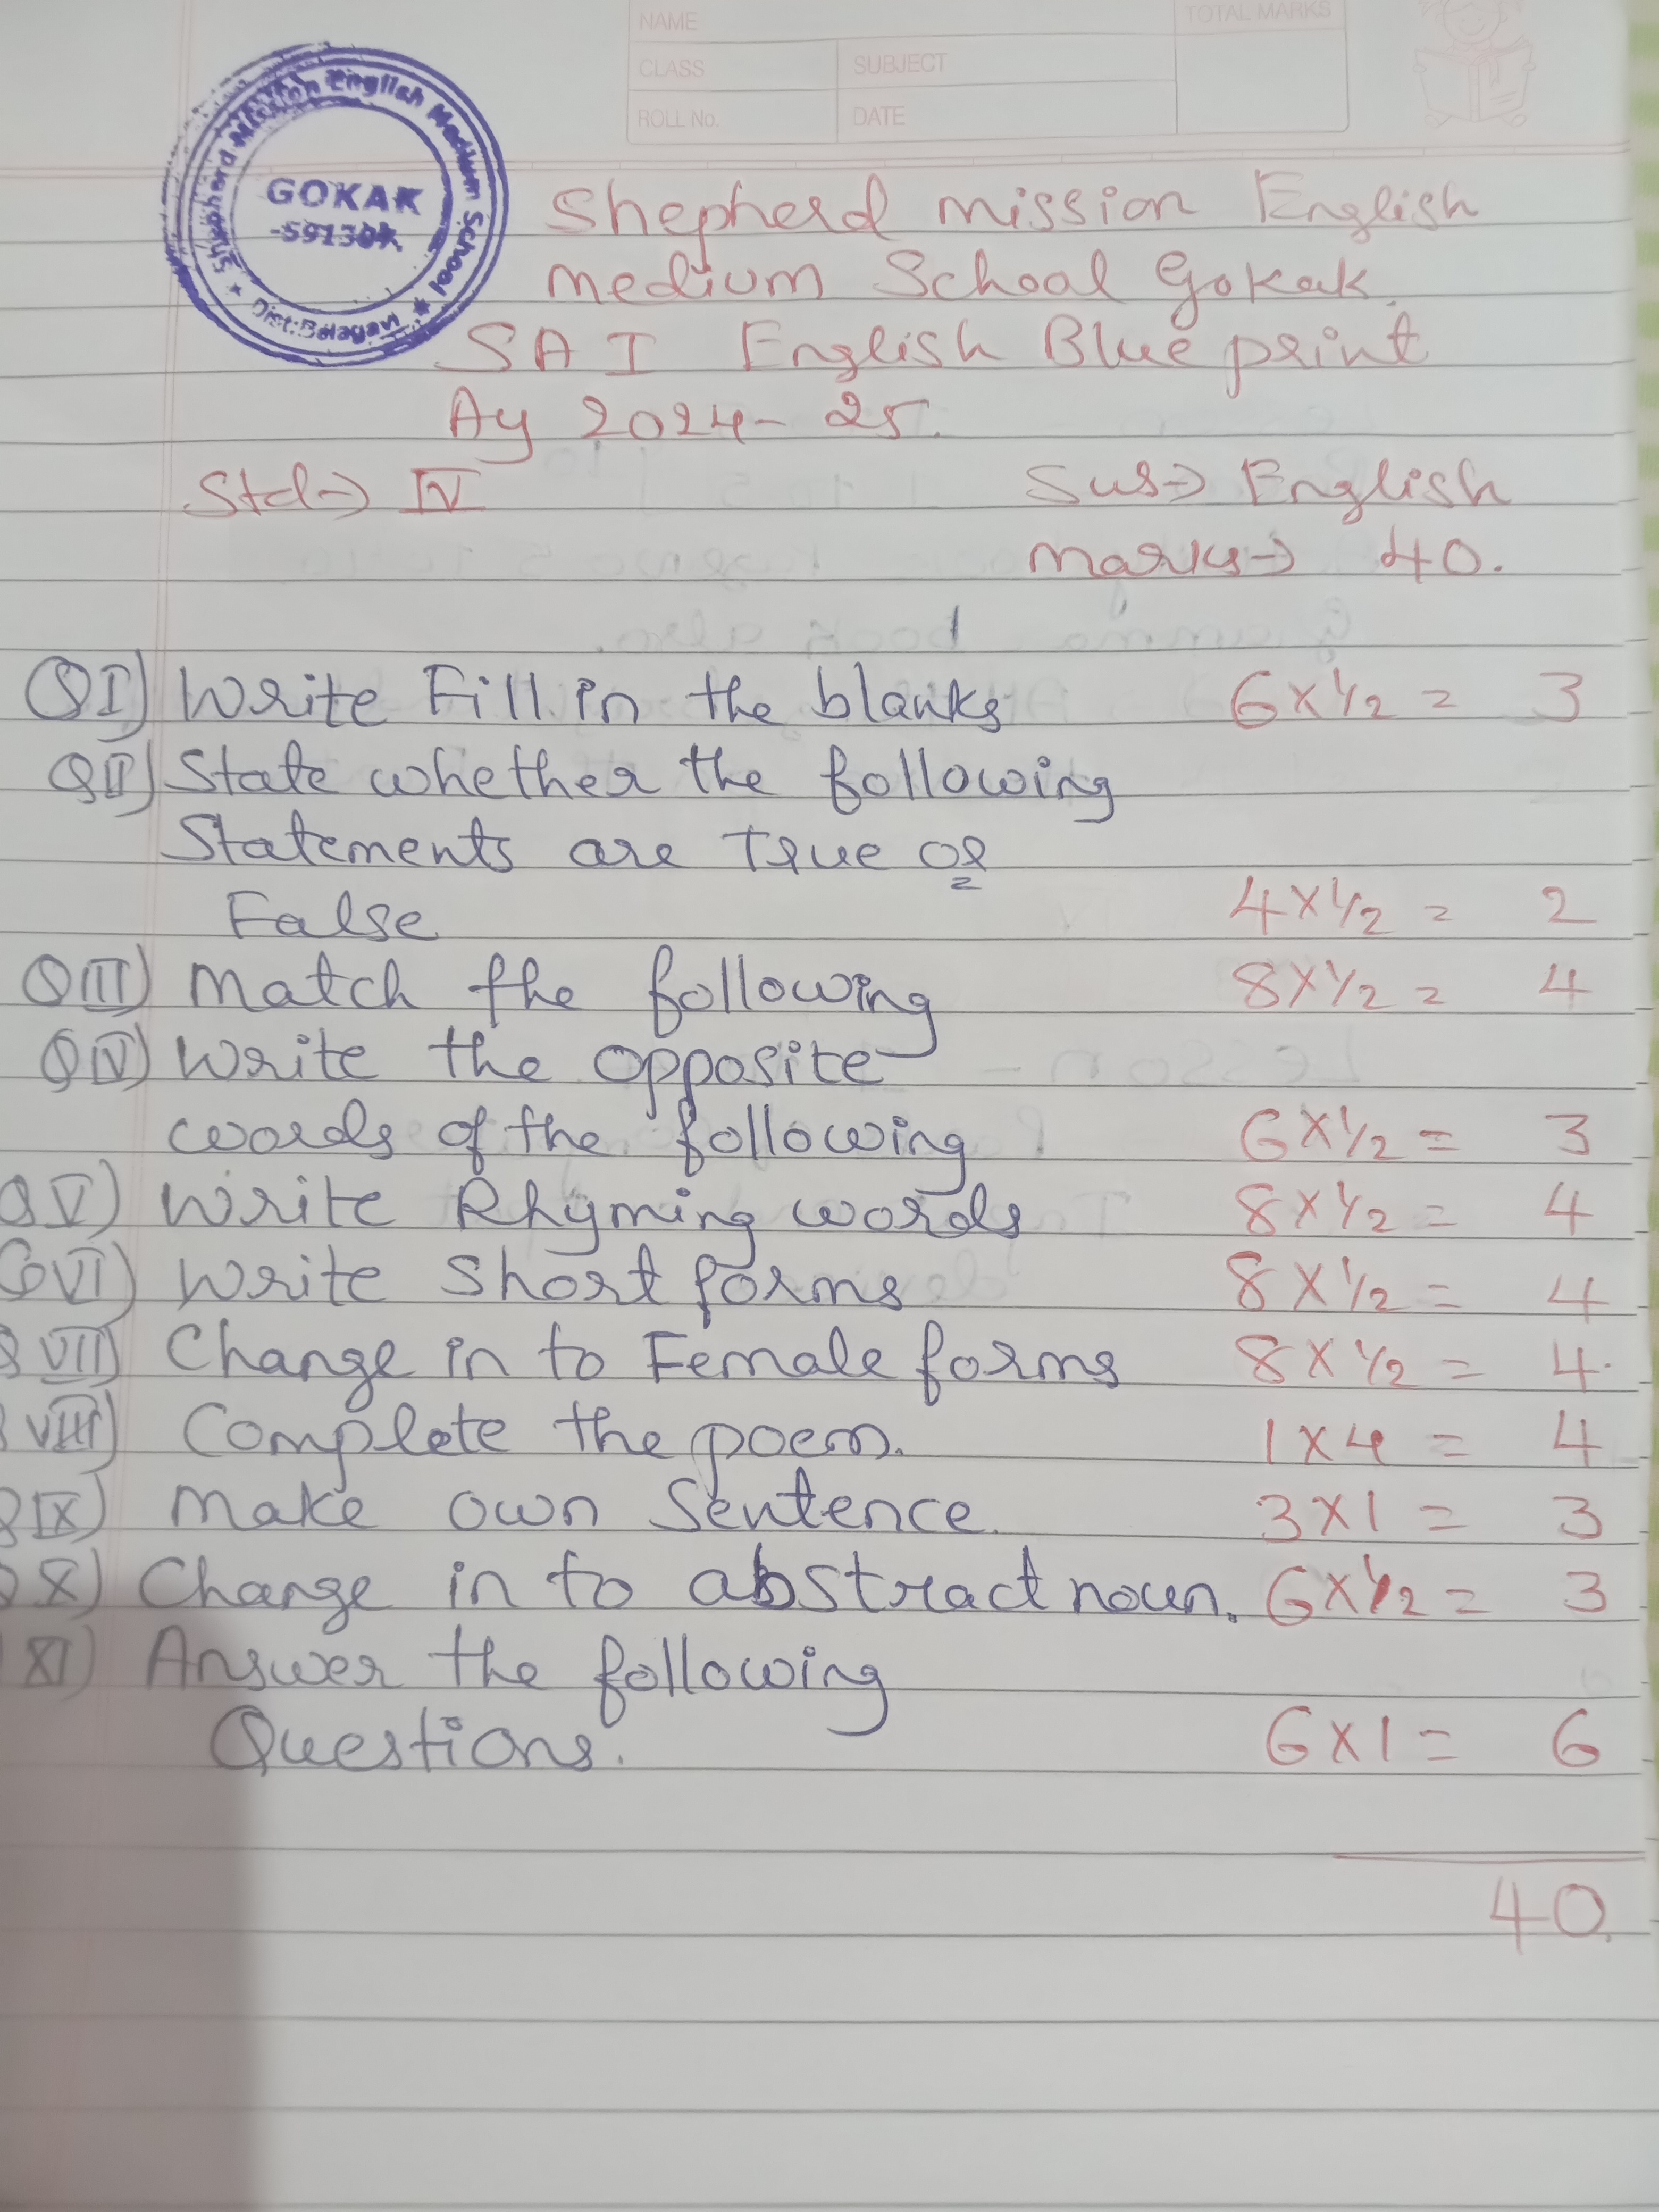 NAME
TOTAL MARKS
CLASS
SUBJECT
ROLL No.
DATE
Shepherd Mission English Medium School
GOKAK
Dist: Belagavi
Shepherd mission English
medium School Gokak.
SA I English Blue print
Ay 2024-25.
Std→ IV
Sub→ English
marks→ 40.
QI) Write Fill in the blanks 6×1/2 = 3
QII) State whether the following
Statements are True or
False 4×1/2 = 2
QIII) Match the following 8×1/2 = 4
QIV) Write the opposite
words of the following 6×1/2 = 3
QV) Write Rhyming words 8×1/2 = 4
QVI) Write Short forms 8×1/2 = 4
QVII) Change in to Female forms 8×1/2 = 4.
QVIII) Complete the poem. 1×4 = 4
QIX) Make own Sentence. 3×1 = 3
QX) Change in to abstract noun. 6×1/2 = 3
XI) Answer the following
Questions. 6×1 = 6
40.